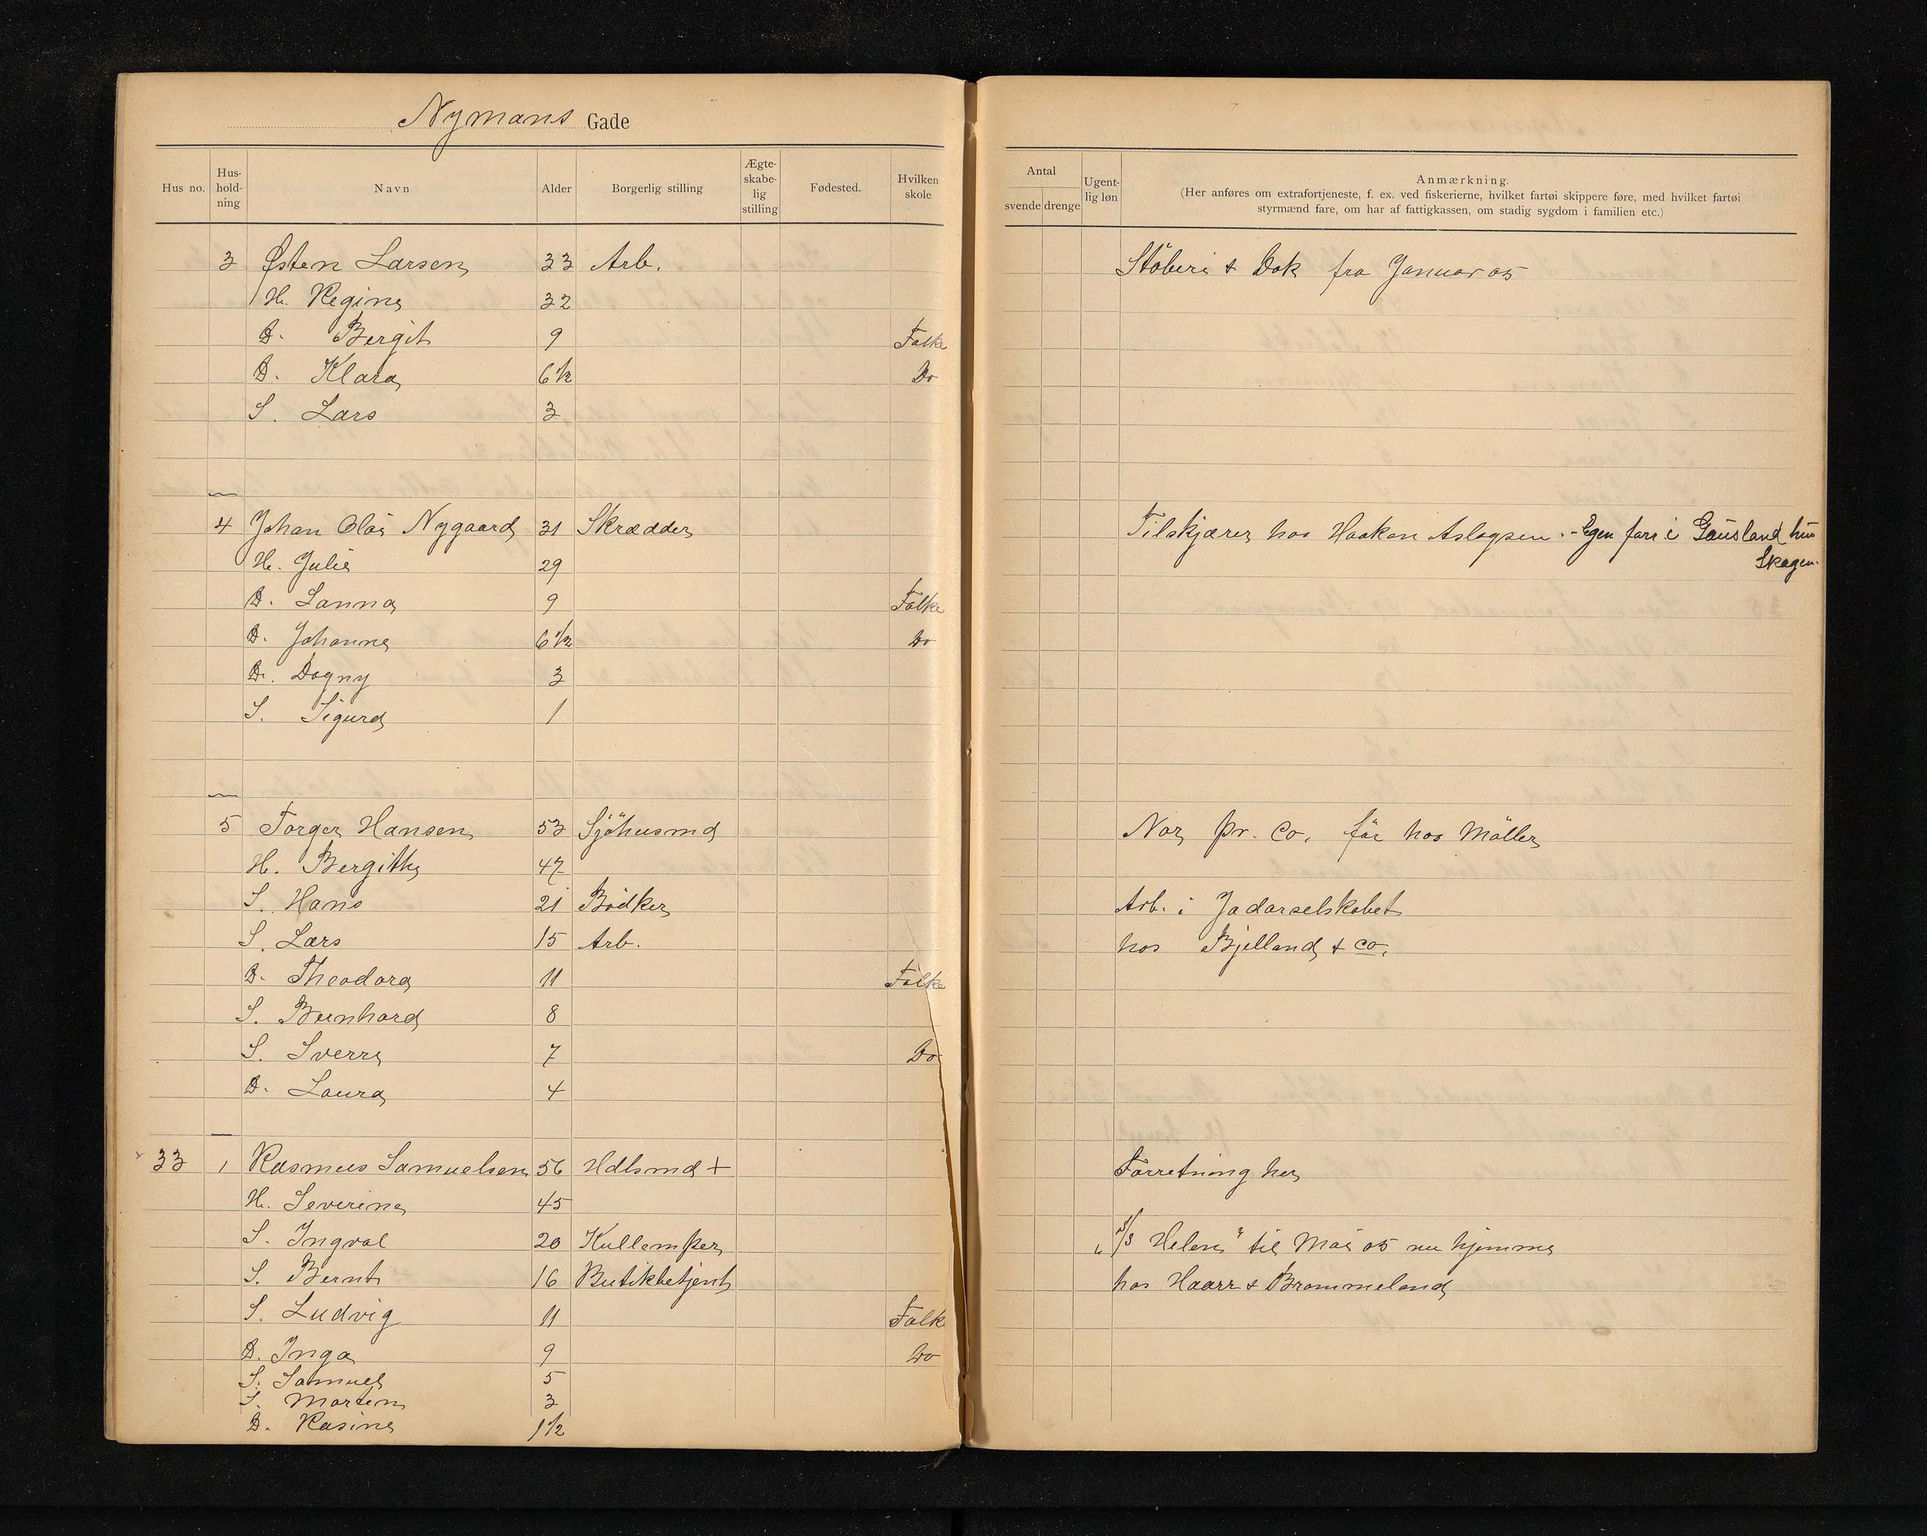 Nymans Gade
Hus no. Hus-hold-ning Navn Alder Borgerlig stilling Ægte-skabe-lig stilling Fødested. Hvilken skole
Antal svende drenge Ugent-lig løn Anmærkning.
(Her anføres om extrafortjeneste, f. ex. ved fiskerierne, hvilket fartøi skippere føre, med hvilket fartøi
styrmænd fare, om har af fattigkassen, om stadig sygdom i familien etc.)
3 Østen Larsen 33 Arb. Støberi & Dok fra Januar 05
H. Regine 32
D. Bergit 9 Folke
D. Klara 6½ Do
S. Lars 3
4 Johan Olai Nygaard 31 Skrædder Tilskjærer hos Haakon Aslagsen. - Egen forr i Gausland hus
Skagen.
H. Julie 29
D. Sanna 9 Folke
D. Johanne 6½ Do
D. Dagny 3
S. Sigurd 1
5 Torger Hansen 53 Sjöhusmd Nor. pr. Co. før hos Möller
H. Bergithe 47
S. Hans 21 Bødker Arb. i Jadarselskabet
S. Lars 15 Arb. hos Bjelland & Co.
D. Theodora 11 Folke
S. Bernhard 8
S. Sverre 7 Do
D. Laura 4
33 1 Rasmus Samuelsen 56 Hdlsmd + Forretning her
H. Severine 45
S. Ingval 20 Kullemper „S/S Helen" til Mai 05 nu hjemme
S. Bernt 16 Butikbetjent hos Haarr & Brommeland
S. Ludvig 11 Folk
D. Inga 9 Do
S. Samuel 5
S. Morten 3
D. Rasine 1½